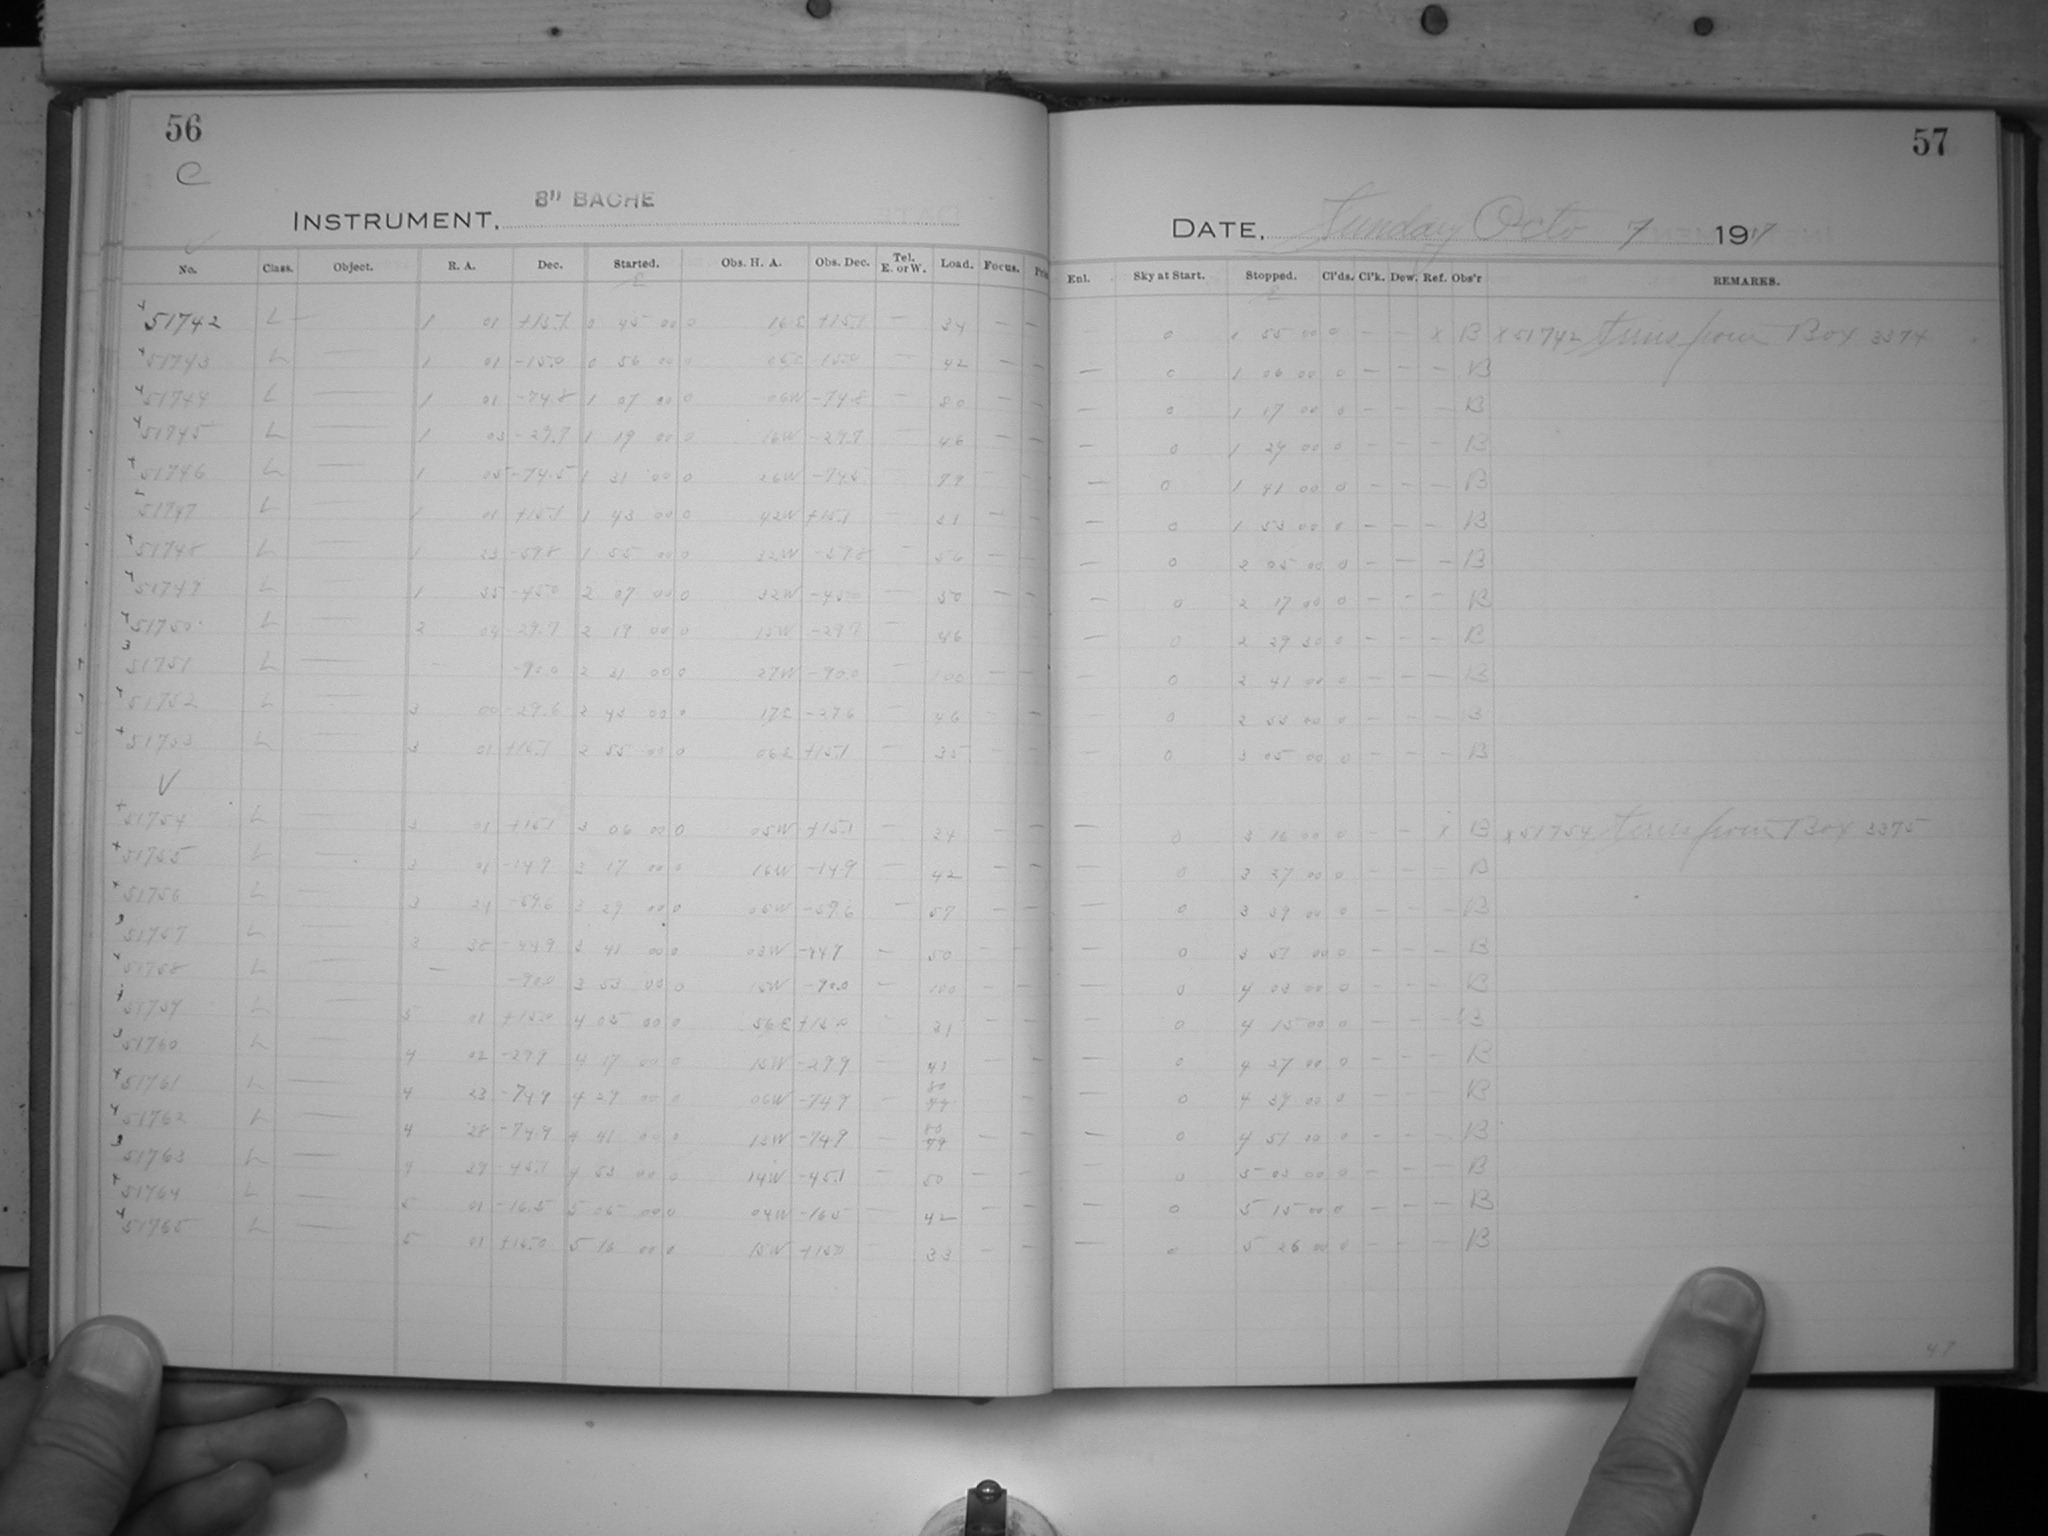 56
57
C
INSTRUMENT, 8" BACHE
DATE, Sunday Octo 7 1917
No. Class. Object. R. A. Dec. Started. Obs. H. A. Obs. Dec. Tel. E. or W. Load. Focus. Enl. Sky at Start. Stopped. Cl'ds. Cl'k. Dew. Ref. Obs'r REMARKS.
51742 L — 1 01 +15.1 0 45 00 0 16E +15.1 — 34 — — 0 0 55 00 0 — — x B x 51742 from Box 3374
51743 L — 1 01 -15.0 0 56 00 0 05E -15.0 — 42 — — — 0 1 06 00 0 — — — B
51744 L — 1 01 -74.8 1 07 00 0 06W -74.8 — 80 — — — 0 1 17 00 0 — — — B
51745 L — 1 03 -29.7 1 19 00 0 16W -29.7 — 46 — — — 0 1 29 00 0 — — — B
51746 L — 1 05 -74.5 1 31 00 0 26W -74.5 — 79 — — — 0 1 41 00 0 — — — B
51747 L — 1 01 +15.1 1 43 00 0 42W +15.1 — 31 — — — 0 1 53 00 0 — — — B
51748 L — 1 23 -59.8 1 55 00 0 32W -59.8 — 56 — — — 0 2 05 00 0 — — — B
51749 L — 1 35 -45.0 2 07 00 0 32W -45.0 — 50 — — — 0 2 17 00 0 — — — B
51750 L — 2 04 -29.7 2 19 00 0 15W -29.7 — 46 — — — 0 2 29 30 0 — — — B
51751 L — — -90.0 2 31 00 0 27W -90.0 — 100 — — — 0 2 41 00 0 — — — B
51752 L — 3 00 -29.6 2 43 00 0 17E -29.6 — 46 — — — 0 2 53 00 0 — — — B
51753 L — 3 01 +15.1 2 55 00 0 06E +15.1 — 35 — — — 0 3 05 00 0 — — — B
51754 L — 3 01 +15.1 3 06 00 0 05W +15.1 — 34 — — — 0 3 16 00 0 — — x B x 51754 from Box 3375
51755 L — 3 01 -14.9 3 17 00 0 16W -14.9 — 42 — — — 0 3 27 00 0 — — — B
51756 L — 3 24 -59.6 3 29 00 0 05W -59.6 — 57 — — — 0 3 39 00 0 — — — B
51757 L — 3 38 -44.9 3 41 00 0 03W -44.9 — 50 — — — 0 3 51 00 0 — — — B
51758 L — -90.0 3 53 00 0 15W -90.0 — 100 — — — 0 4 03 00 0 — — — B
51759 L — 5 01 +15.0 4 05 00 0 56E +15.0 — 31 — — — 0 4 15 00 0 — — — B
51760 L — 4 02 -29.9 4 17 00 0 15W -29.9 — — — — 0 4 27 00 0 — — — B
51761 L — 4 23 -74.9 4 29 00 0 06W -74.9 — 80 — — 0 4 39 00 0 — — — B
51762 L — 4 28 -74.9 4 41 00 0 13W -74.9 — 80 — — — 0 4 51 00 0 — — — B
51763 L — 4 39 -45.1 4 53 00 0 14W -45.1 — 50 — — — 0 5 03 00 0 — — — B
51764 L — 5 01 -16.5 5 05 00 0 04W -16.5 — 42 — — — 0 5 15 00 0 — — — B
51765 L — 5 01 +15.0 5 16 00 0 15W +15.0 — 33 — — — 0 5 26 00 0 — — — B